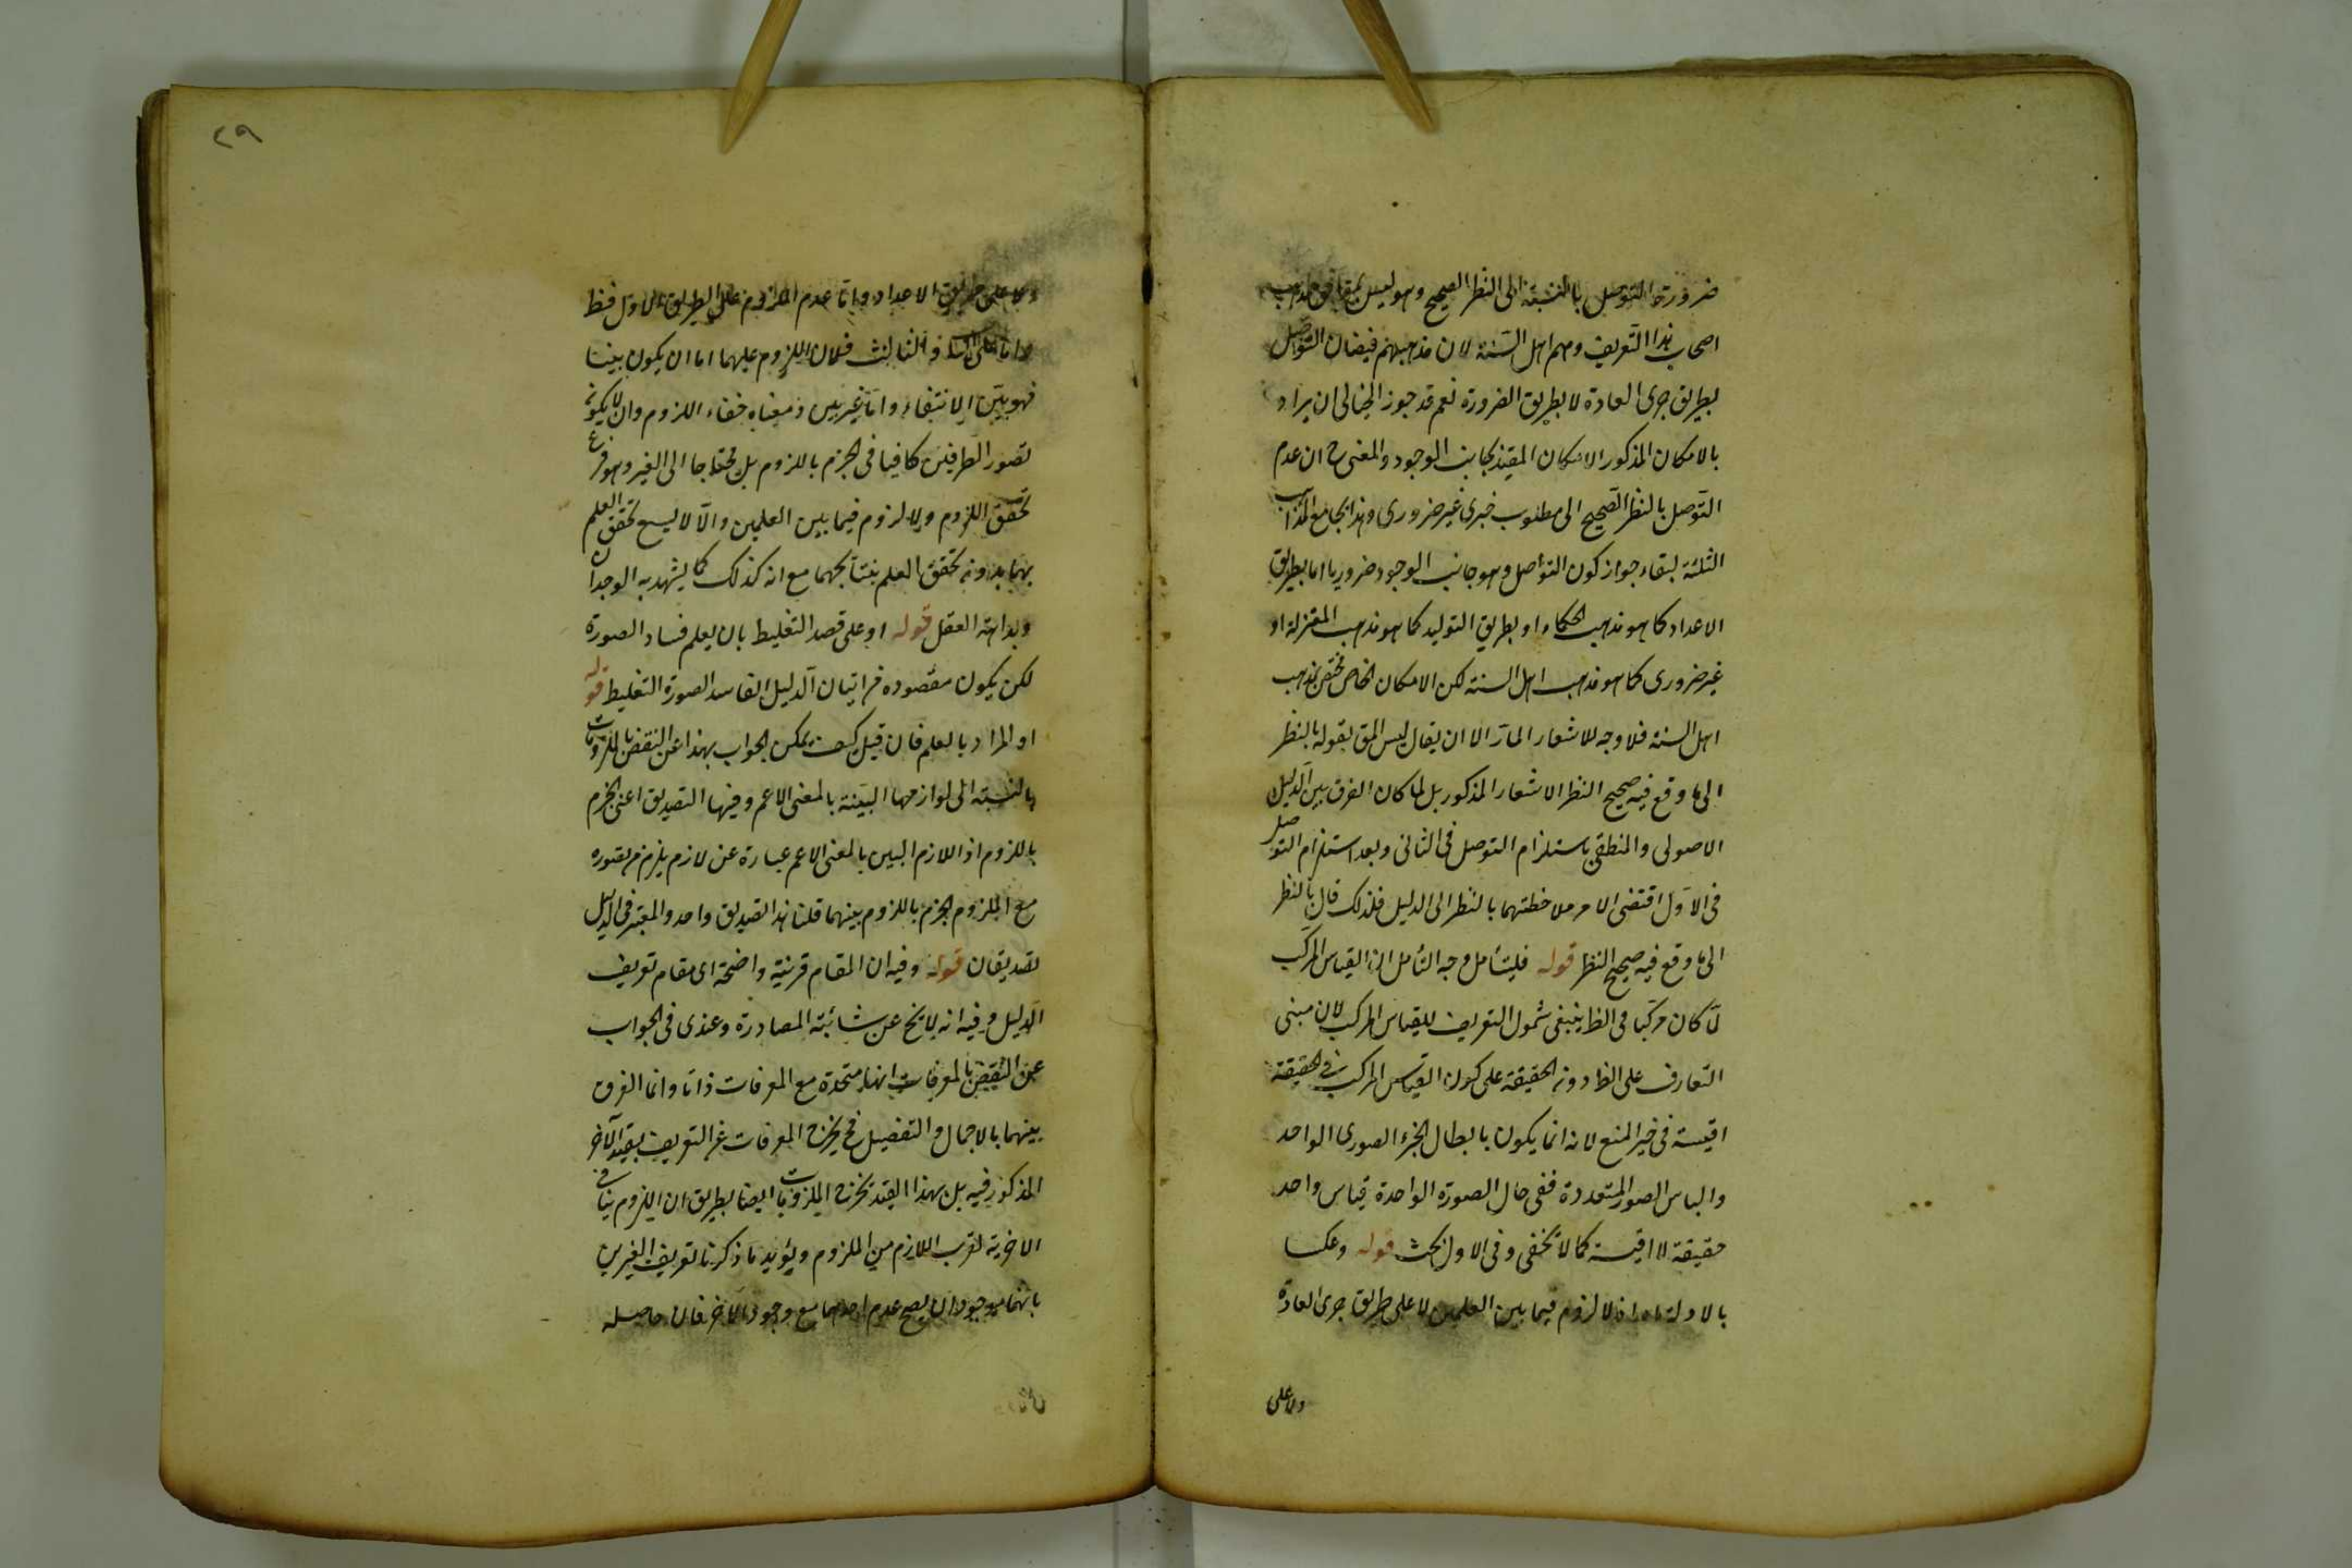 ضرورة التوصل بالنسبة الى النظر الصحيح وهو ليس بمطابق لمذهب
اصحاب هذا التعريف وهم اهل السنة لان مذهبهم فيضان التوصل
بطريق جرى العادة لا بطريق الضرورة نعم قد جوز الخيالى ان يراد
بالامكان المذكور الامكان المقيد بجانب الوجود والمعنى ح ان عدم
التوصل بالنظر الصحيح الى مطلوب خبرى غير ضرورى وهذا يجامع المذاهب
الثلثة لبقاء جواز كون التوصل وهو جانب الوجود ضروريا اما بطريق
الاعداد كما هو مذهب الحكماء او بطريق التوليد كما هو مذهب المعتزلة او
غير ضرورى كما هو مذهب اهل السنة لكن الامكان الخاص مختص بمذهب
اهل السنة فلا وجه للاشعار المار الا ان يقال ليس المق بقوله بالنظر
الى ما وقع فيه صحيح النظر الاشعار المذكور بل لما كان الفرق بين الدليل
الاصولى والمنطقى باستلزام التوصل فى الثانى وبعد استلزام التوصل
فى الاول اقتضى الامر ملاحظتهما بالنظر الى الدليل فلذلك قال بالنظر
الى ما وقع فيه صحيح النظر قوله فليتأمل وجه التأمل ان القياس المركب
لما كان مركبا فى الظ ينبغى شمول التعريف للقياس المركب لان مبنى
التعارف على الظ دون الحقيقة على كون القياس المركب فى الحقيقة
اقيسة فى خير المنع لانه انما يكون بابطال الجزء الصورى الواحد
والباس الصور المتعددة ففى حال الصورة الواحدة قياس واحد
حقيقة لا اقيسة كما لا يخفى وفى الاول بحث قوله وعكسا
بالاولة اذ لا لزوم فيما بين العلمين لا على طريق جرى العادة
ولا على
٢٩
ولا على طريق الاعداد واما عدم اللزوم على الطريق الاول فظ
واما على الثانى والثالث فلان اللزوم عليهما اما ان يكون بينا
فهو بين الانتفاء واما غير بين ومعناه خفاء اللزوم وان لا يكون
تصور الطرفين كافيا فى الجزم باللزوم بل محتاجا الى الغير وهو فرع
تحقق اللزوم ولا لزوم فيما بين العلمين والا لا يسع تحقق العلم
بهما بدون تحقق العلم بنتائجهما مع انه كذلك كما يشهد به الوجدان
وبداهة العقل قوله او على قصد التغليط بان يعلم فساد الصورة
لكن يكون مقصوده من اتيان الدليل الفاسد الصورة التغليط قوله
او المراد بالعلم فان قيل كيف يمكن الجواب بهذا عن النقض بالملزومات
بالنسبة الى لوازمها البينة بالمعنى الاعم وفيها التصديق اعنى الجزم
باللزوم اذ اللازم البين بالمعنى الاعم عبارة عن لازم يلزم من تصوره
مع الملزوم الجزم باللزوم بينهما قلنا هذا تصديق واحد والمعتبر فى الدليل
تصديقان قوله وفيه ان المقام قرينة واضحة اى مقام تعريف
الدليل وفيه انه لا يخ عن شائبة المصادرة وعندى فى الجواب
عن النقض بالمعرفات انها متحدة مع المعرفات ذاتا وانما الفرق
بينهما بالاجمال والتفصيل فح يخرج المعرفات عن التعريف بقيد الآخر
المذكور فيه بل بهذا القيد يخرج الملزومات ايضا بطريق ان اللزوم ينافى
الاخرية لقرب اللازم من الملزوم ويؤيد ما ذكرنا تعريف الغيرين
بانهما موجودان يصح عدم احدهما مع وجود الآخر فان حاصله